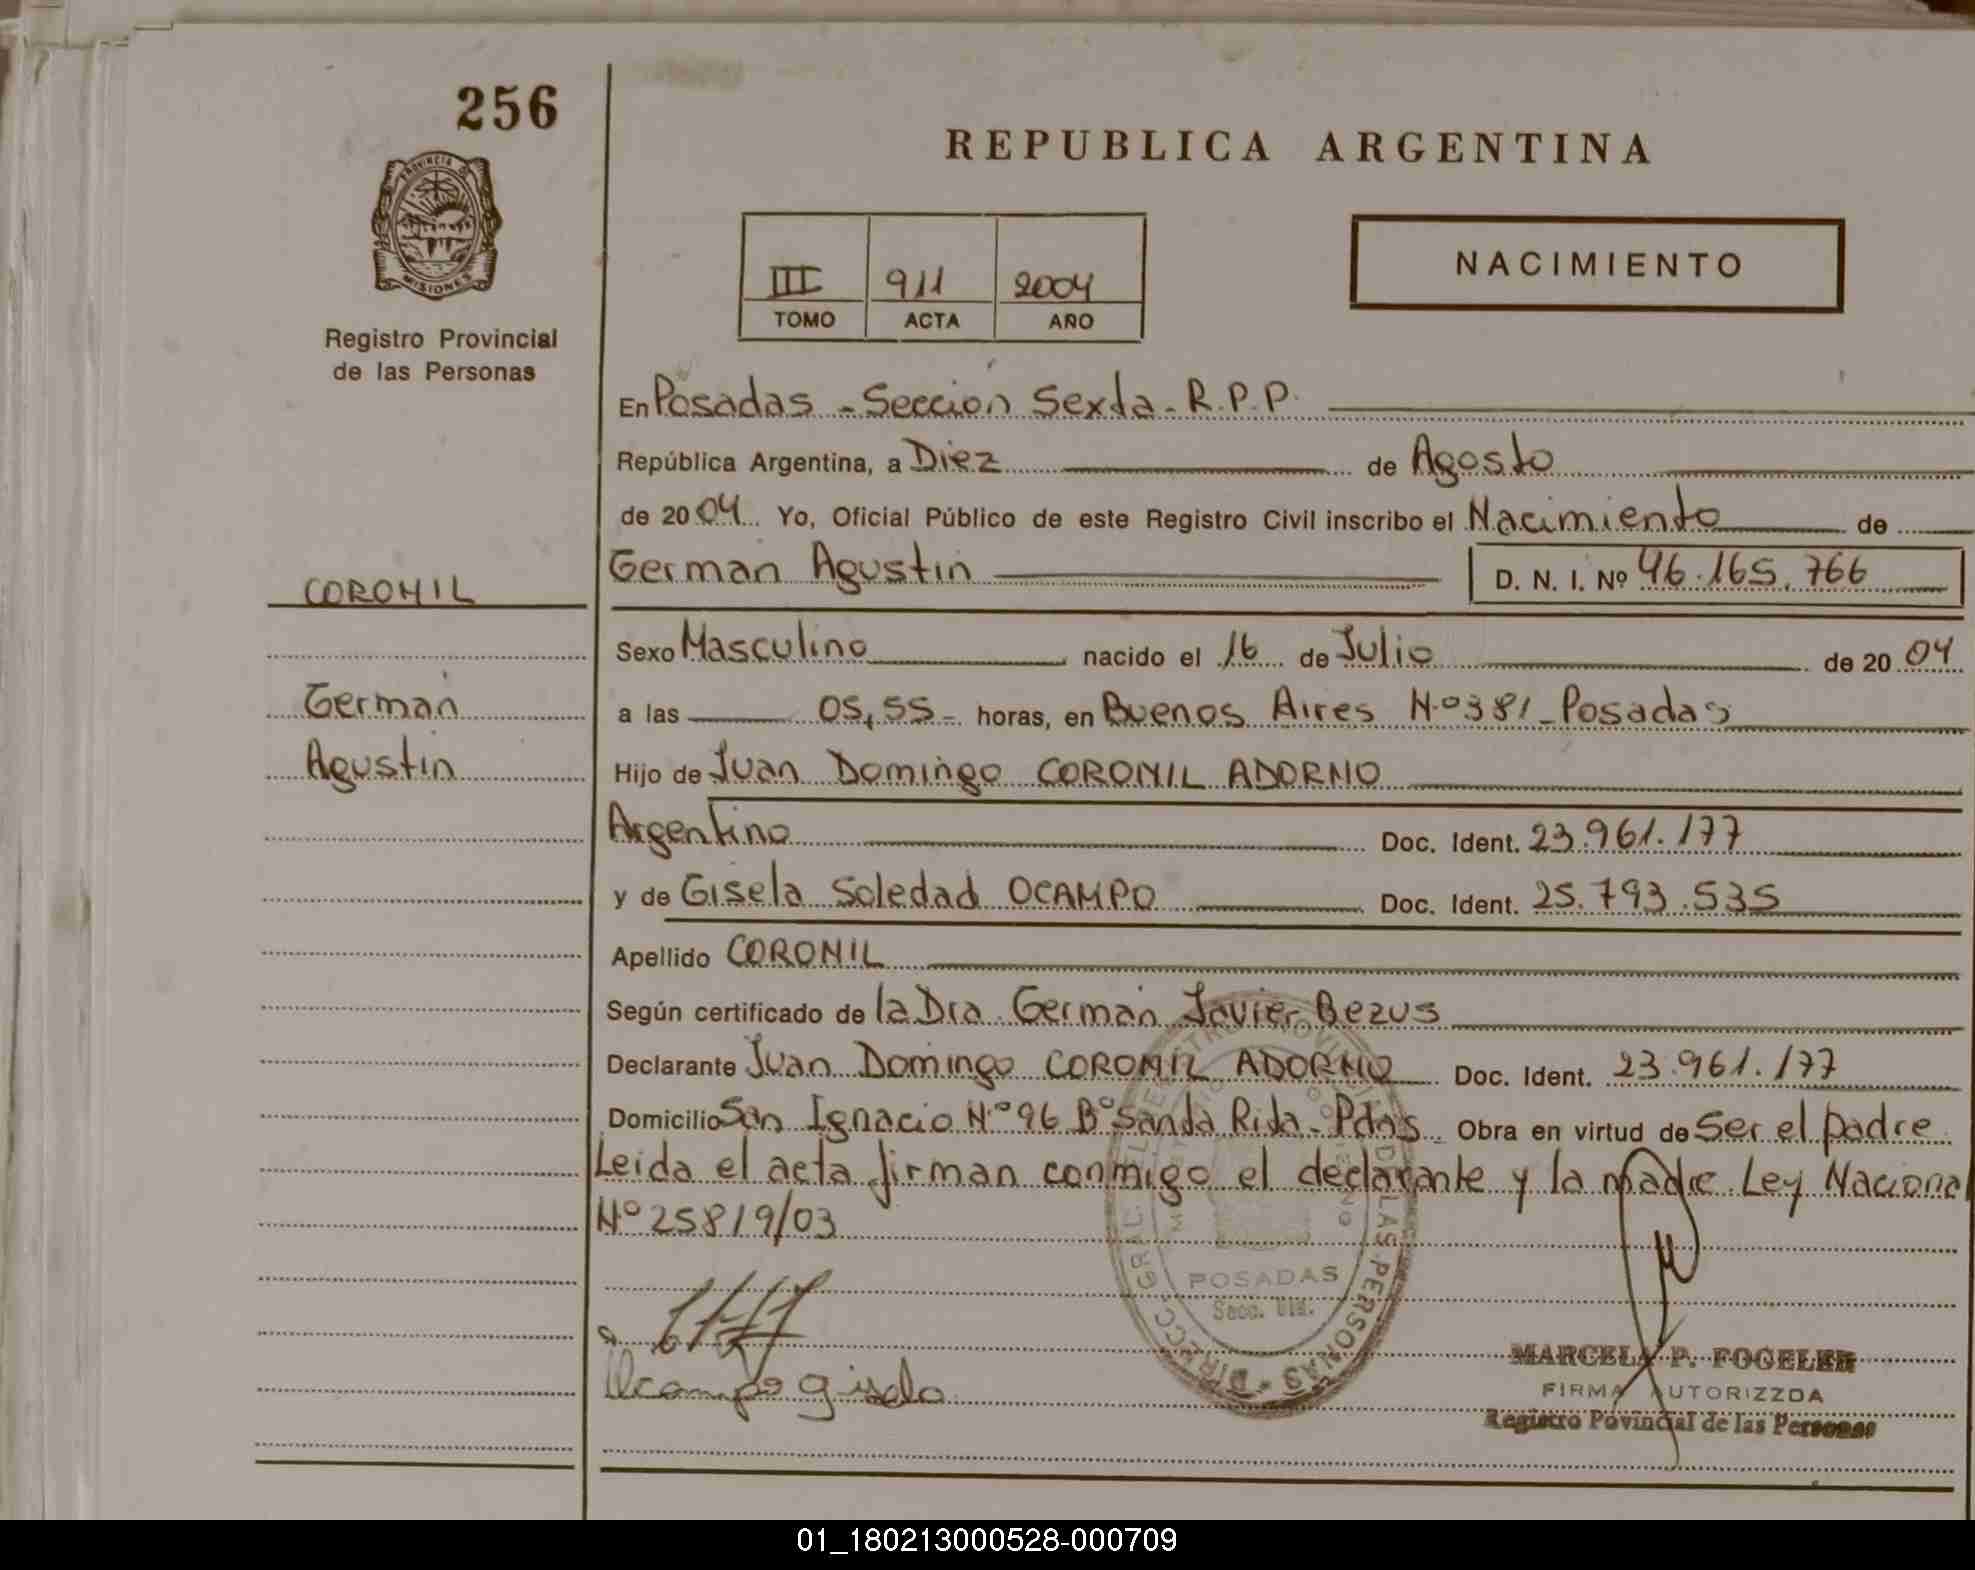 256
REPUBLICA ARGENTINA
PROVINCIA
MISIONES
III 911 2004
TOMO ACTA AÑO
NACIMIENTO
Registro Provincial
de las Personas
En Posadas - Sección Sexta - R.P.P.
República Argentina, a Diez de Agosto
de 2004 Yo, Oficial Público de este Registro Civil inscribo el Nacimiento de
CORONIL
Germán Agustín D. N. I. Nº 46.165.766
Sexo Masculino nacido el 16 de Julio de 2004
Germán
a las 05,55 - horas, en Buenos Aires Nº 381 - Posadas
Agustín
Hijo de Juan Domingo CORONIL ADORNO
Argentino Doc. Ident. 23.961.177
y de Gisela Soledad OCAMPO Doc. Ident. 25.793.535
Apellido CORONIL
Según certificado de la Dra. Germán Javier Bezus
Declarante Juan Domingo CORONIL ADORNO Doc. Ident. 23.961.177
Domicilio San Ignacio Nº 96 Bº Santa Rita - Pdas Obra en virtud de Ser el padre
Leida el acta firman conmigo el declarante y la madre Ley Nacional
Nº 25819/03
POSADAS
Secc.
Ocampo Gisela
MARCELA P. FOGELER
FIRMA AUTORIZZDA
Registro Povincial de las Personas
01_180213000528-000709